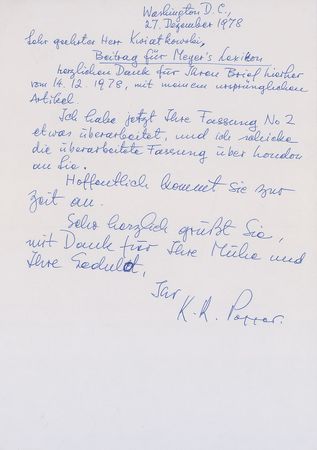 Washington D.C.,
27. Dezember 1978
Sehr geehrter Herr Kwiatkowski,
Beitrag für Meyer's Lexikon
herzlichen Dank für Ihren Brief hierher
vom 14. 12 1978, mit meinem ursprünglichen
Artikel.
Ich habe jetzt Ihre Fassung No 2
etwas überarbeitet, und ich schicke
die überarbeitete Fassung über London
an Sie.
Hoffentlich kommt Sie zur
Zeit an.
Sehr herzlich grüßt Sie,
mit Dank für Ihre Mühe und
Ihre Geduld,
Ihr
K. R. Popper.